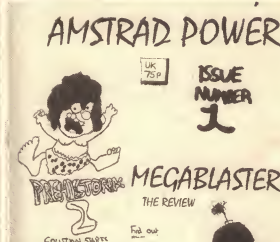 AMSTRAD POWER
UK
75P
ISSUE
NUMBER
1
PREHISTORIK
2
MEGABLASTER
THE REVIEW
Find out